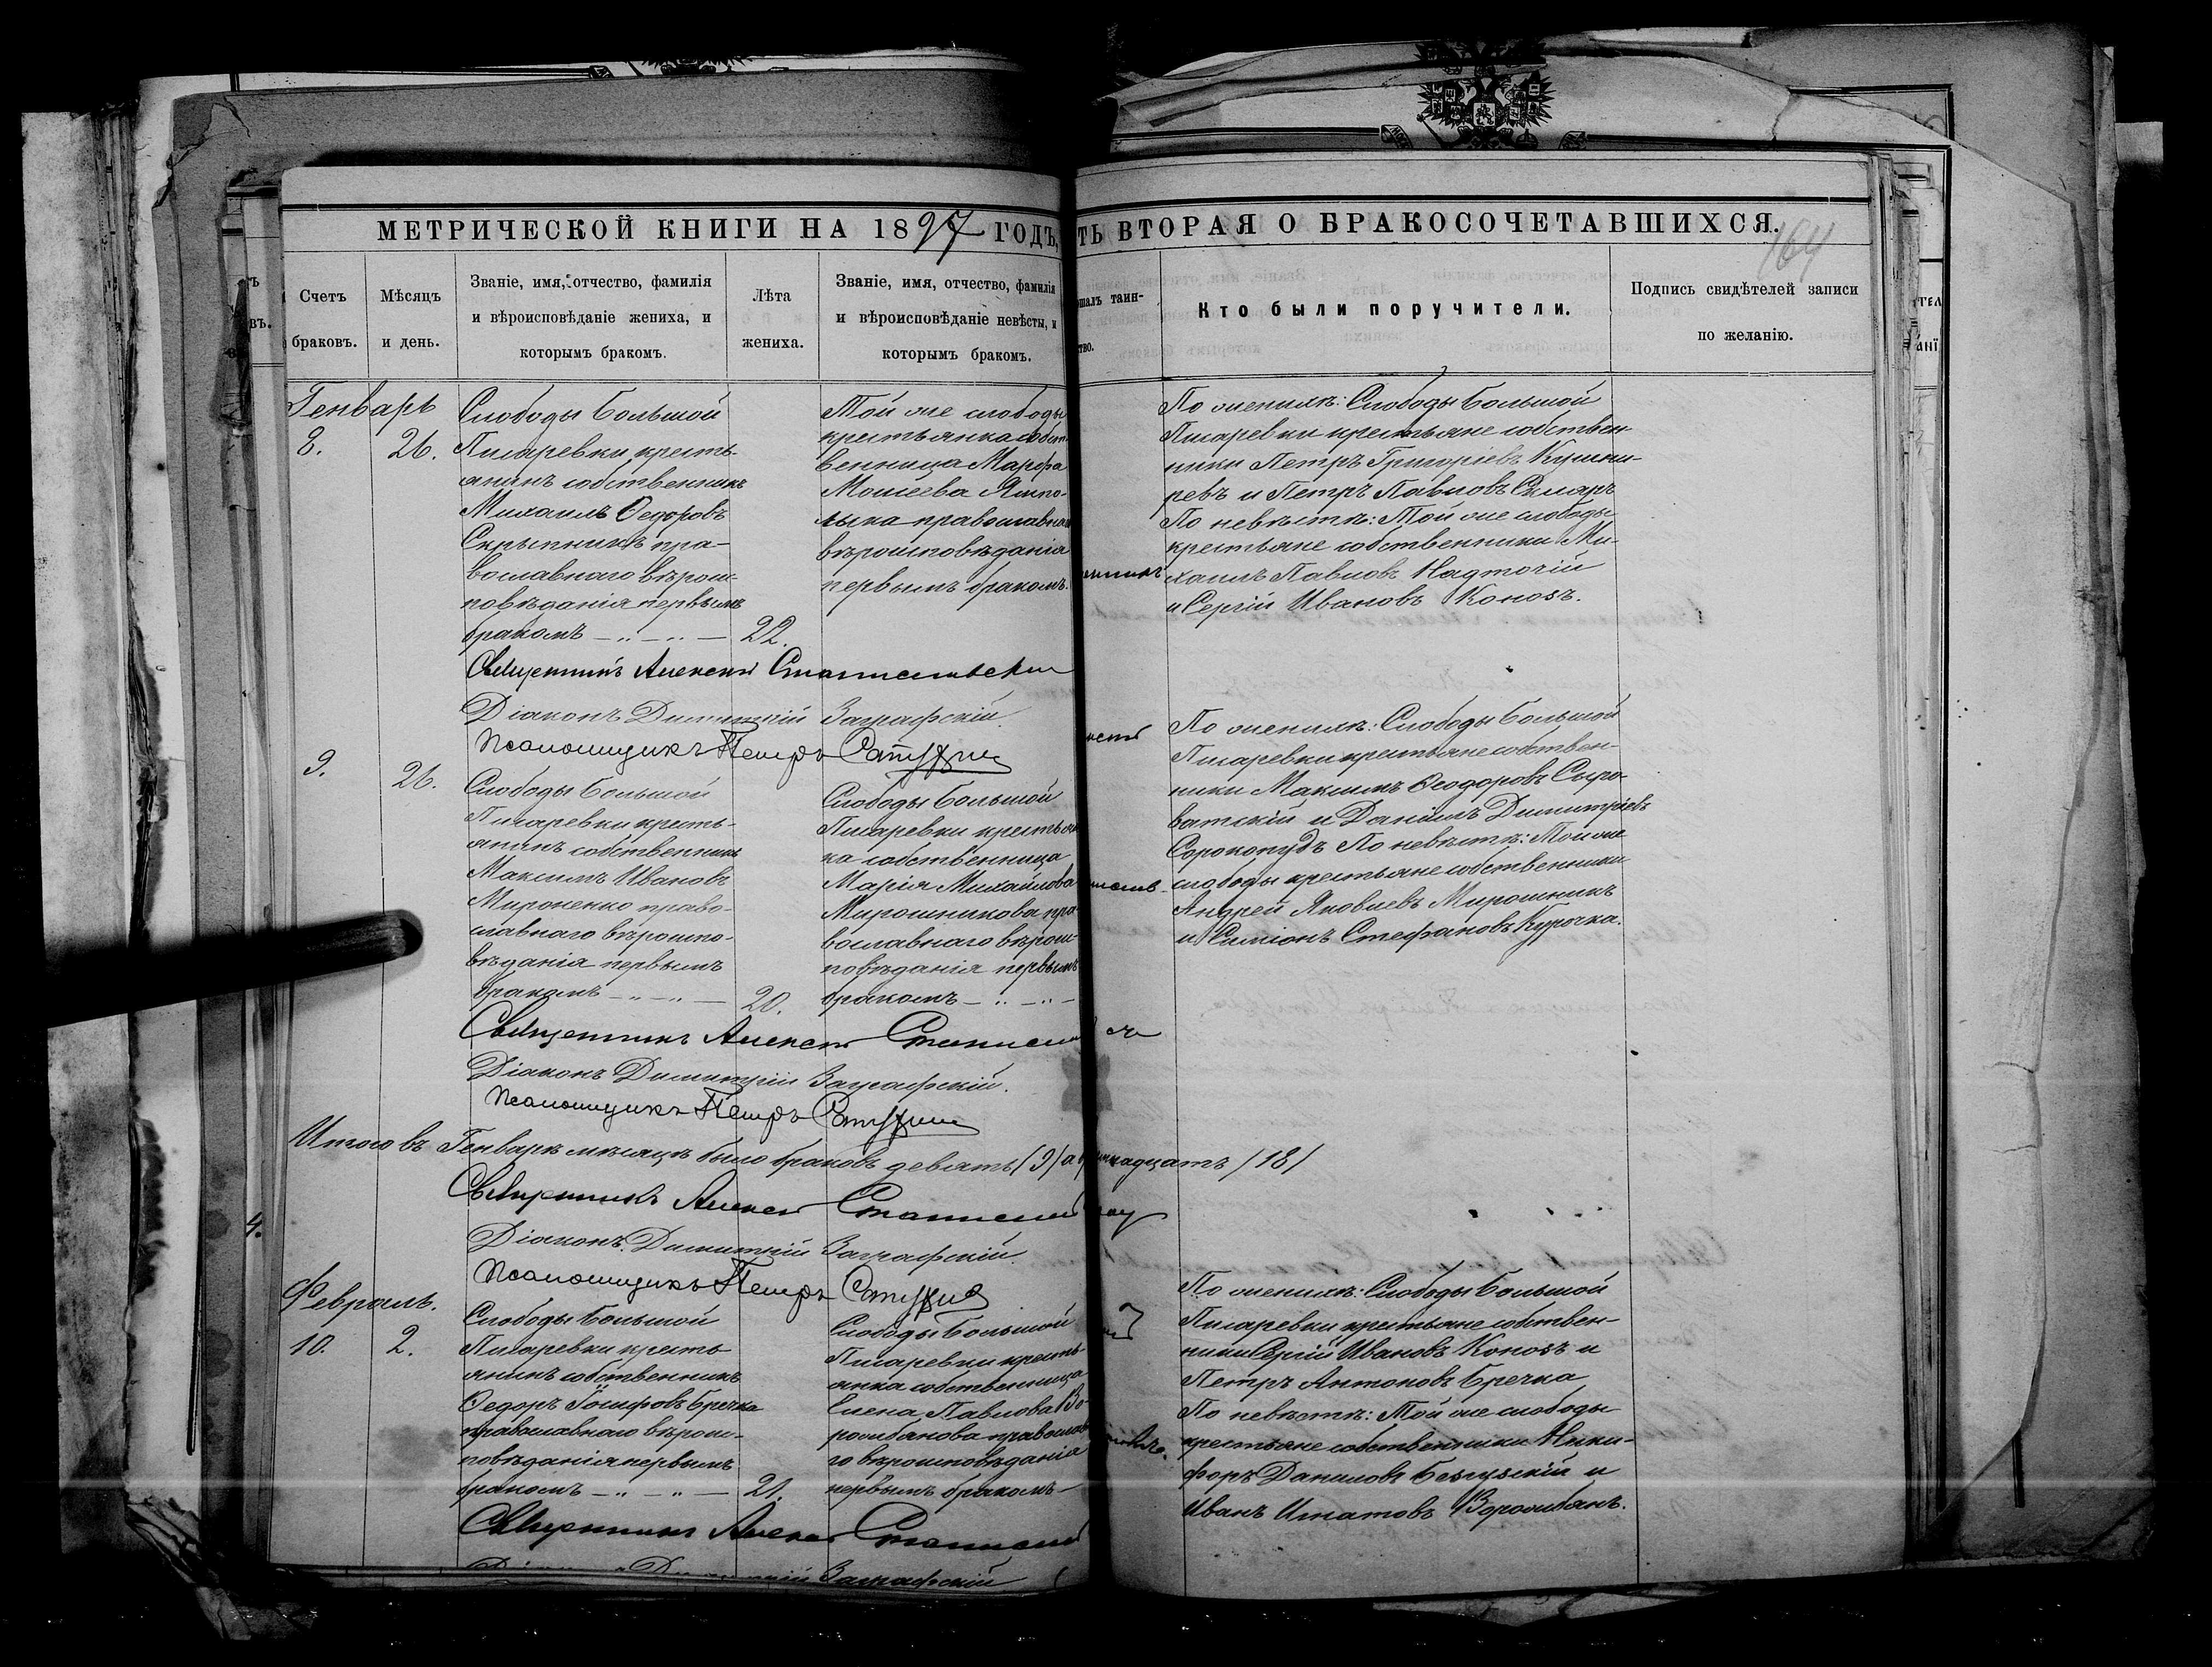 МЕТРИЧЕСКОЙ КНИГИ НА 1897 ГОДЪ,
ТЬ ВТОРАЯ О БРАКОСОЧЕТАВШИХСЯ.
164
Счетъ
браковъ.
Мѣсяцъ
и день.
Званіе, имя, отчество, фамилія
и вѣроисповѣданіе жениха, и
которымъ бракомъ.
Лѣта
жениха.
Званіе, имя, отчество, фамилія
и вѣроисповѣданіе невѣсты, и
которымъ бракомъ.
шалъ таин-
тво.
Кто были поручители.
Подпись свидѣтелей записи
по желанію.
Генварь
8.
26.
Слободы Большой
Писаревки кресть-
янинъ собственникъ
Михаилъ Ѳедоровъ
Скрыпникъ пра-
вославнаго вѣроис-
повѣданія первымъ
бракомъ
22.
Той же слободы
крестьянка собст
венница Марфа
Моисеева
православна
вѣроисповѣданія
первымъ бракомъ.
По женихѣ: Слободы Большой
Писаревки крестьяне собствен-
ники Петръ Григоріевъ Кушни-
ревъ и Петръ Павловъ Скляръ
По невѣстѣ: Той же слободы
крестьяне собственники Ми-
хаилъ Павловъ Надточій
и Сергій Ивановъ Конозъ.
Священникъ Алексѣй
Діаконъ Димитрій Заграфскій.
Псаломщикъ Петръ
9.
26.
Слободы Большой
Писаревки кресть-
янинъ собственникъ
Максимъ Ивановъ
Мироненко право-
славнаго вѣроиспо-
вѣданія первымъ
бракомъ
20.
Слободы Большой
Писаревки крестьян
ка собственница
Марія Михайлова
Мирошникова пра-
вославнаго вѣроис-
повѣданія первымъ
бракомъ
По женихѣ: Слободы Большой
Писаревки крестьяне собствен-
ники Максимъ Ѳеодоровъ Сыро-
ватскій и Даніилъ Димитріевъ
Сорокопудъ По невѣстѣ: Той же
слободы крестьяне собственники
Андрей Яковлевъ Мирошникъ
и Симіонъ Стефановъ Курочка.
Священникъ Алексѣй
Діаконъ Димитрій Заграфскій.
Псаломщикъ Петръ
Итого въ Генварѣ мѣсяцѣ было браковъ девять (9) а надцать /18/
Священникъ Алексѣй
Діаконъ Димитрій Заграфскій.
Псаломщикъ Петръ
Февраль.
10.
2.
Слободы Большой
Писаревки кресть-
янинъ собственникъ
Ѳедоръ Іосифовъ Бречка
православнаго вѣроис-
повѣданія первымъ
бракомъ
21.
Слободы Большой
Писаревки кресть-
янка собственница
Елена Павлова Во-
рожбянова православ
го вѣроисповѣданія
первымъ бракомъ
По женихѣ: Слободы Большой
Писаревки крестьяне собствен-
ники Сергій Ивановъ Конозъ и
Петръ Антоновъ Бречка
По невѣстѣ: Той же слободы
крестьяне собственники Ники-
форъ Даниловъ и
Иванъ Игнатовъ Ворожбянъ.
Священникъ Алексѣй
Заграфскій